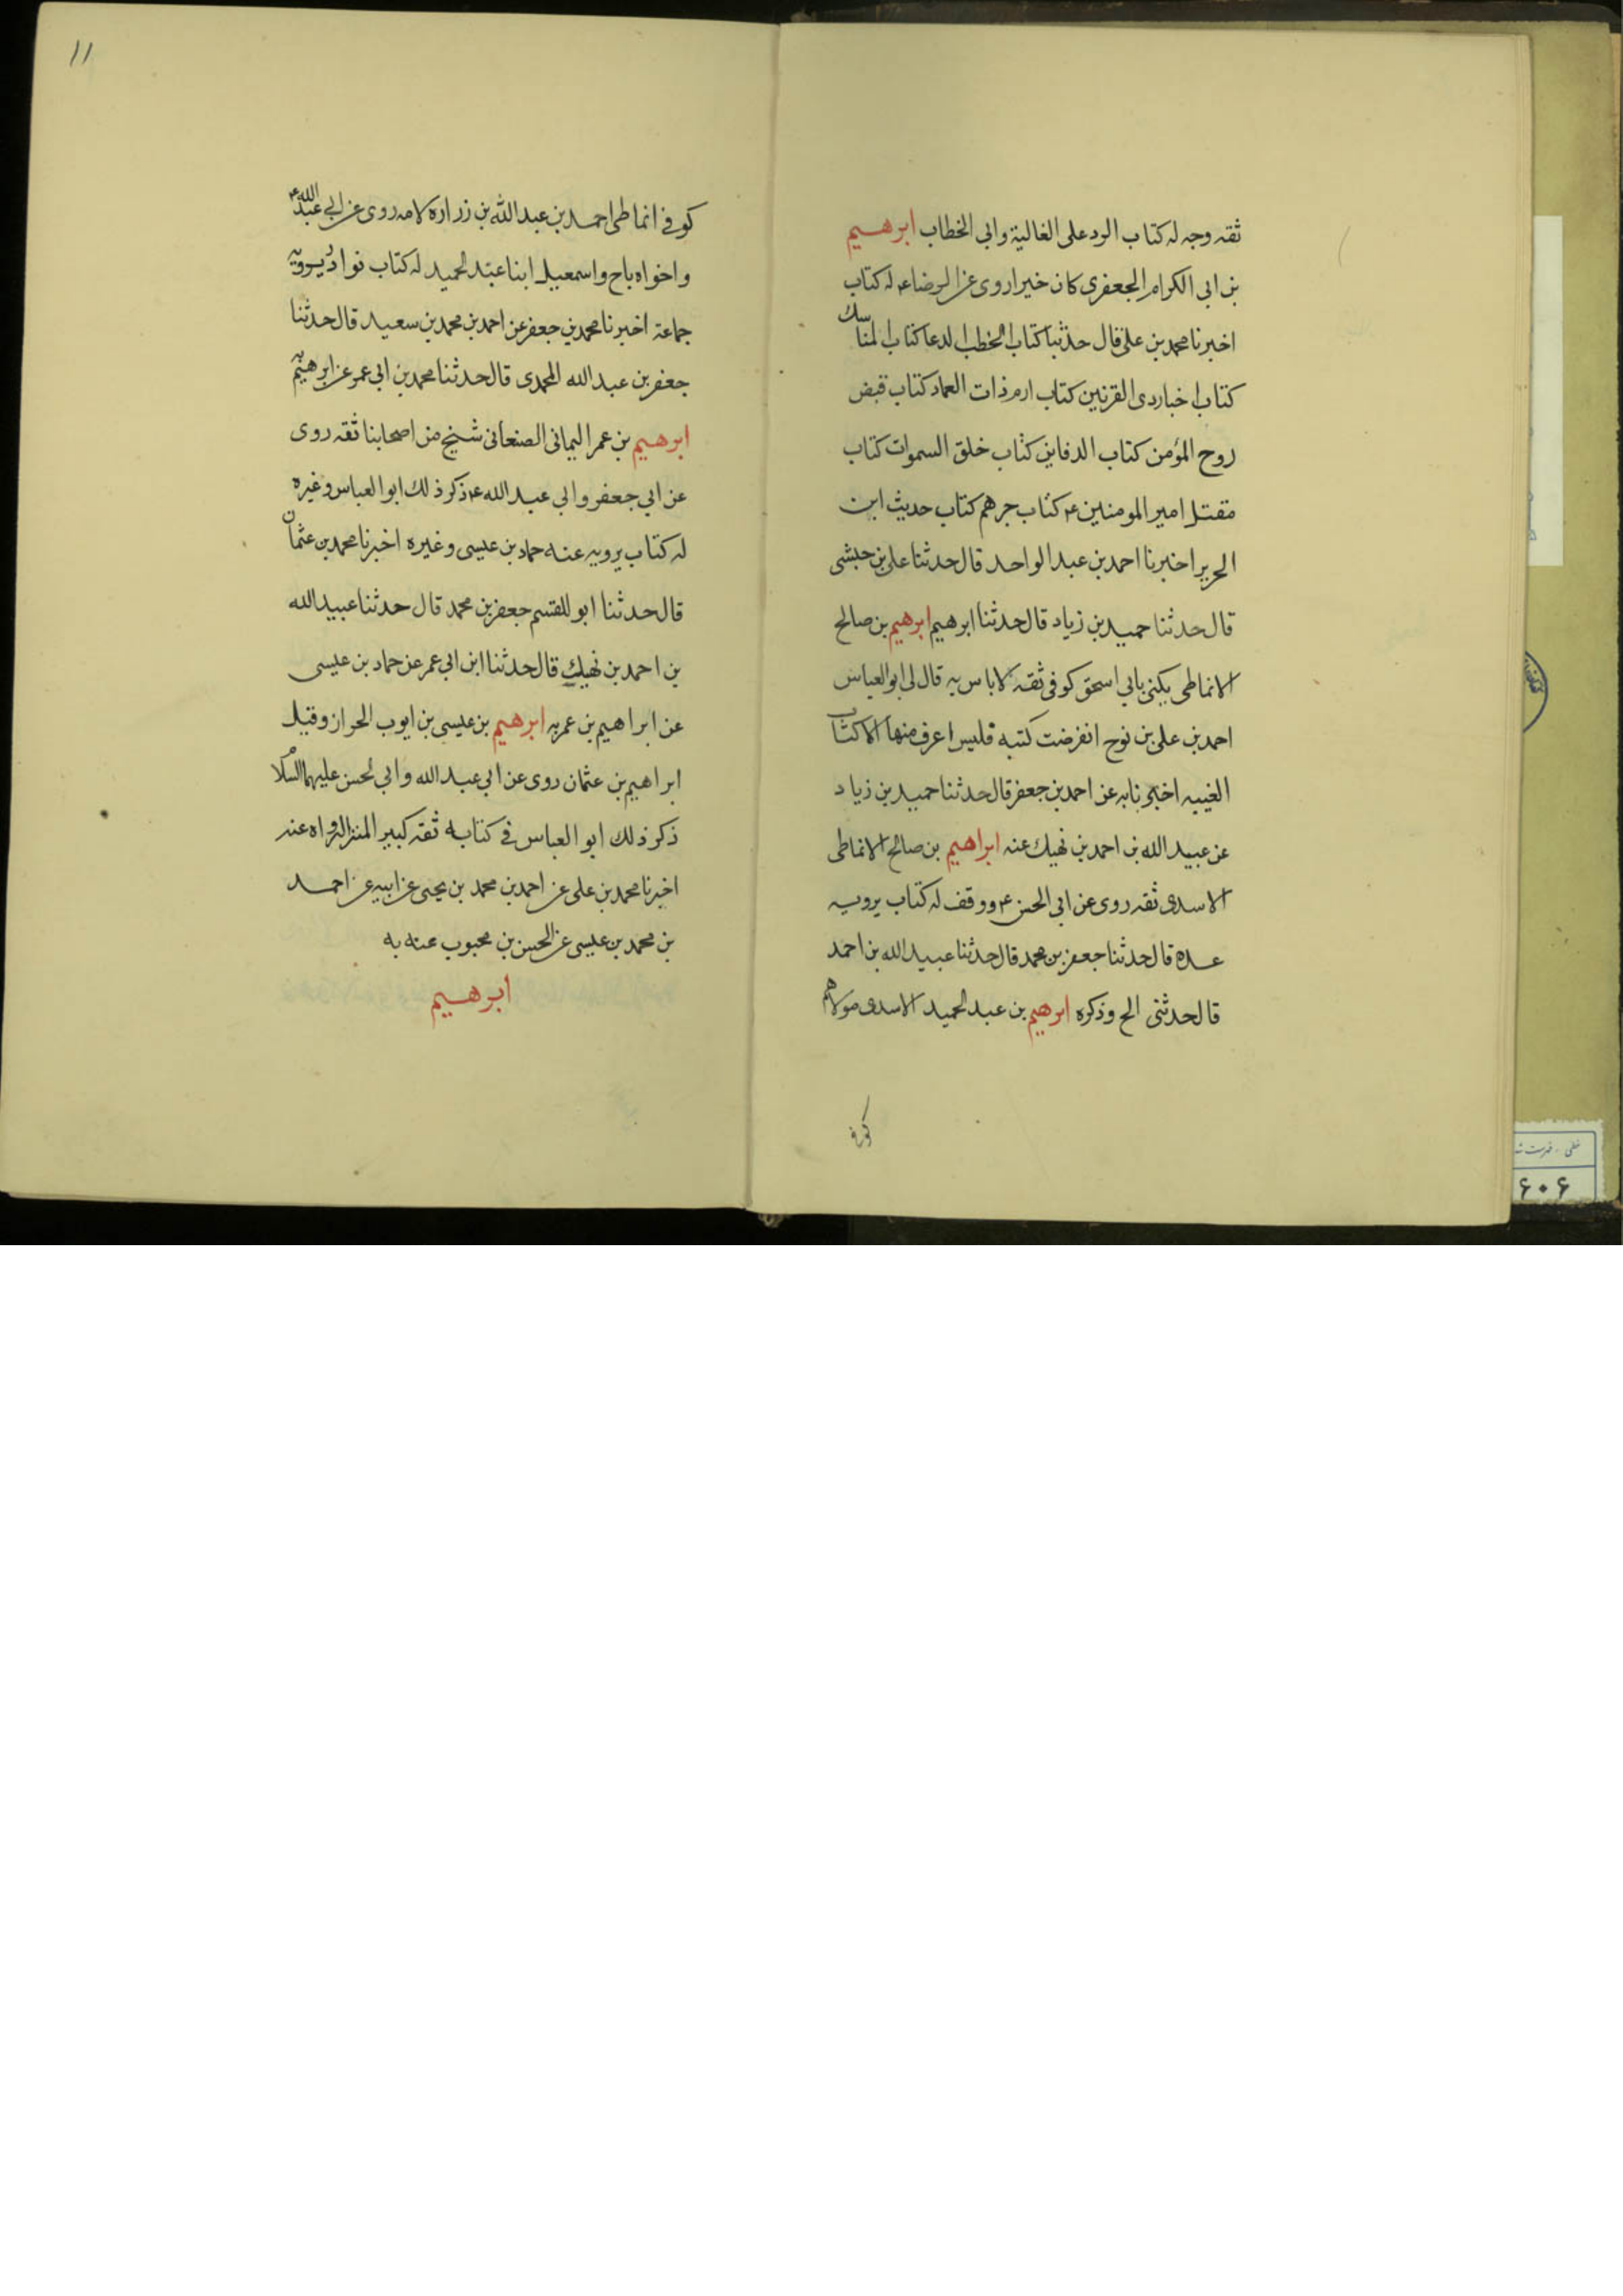 ثقه وجه له كتاب الرد على الغالية وابى الخطاب ابرهيم
بن ابى الكرام الجعفرى كان خيرا روى عن الرضا ء له كتاب
اخبرنا محمد بن على قال حدثنا كتاب الخطب الدعا كتاب المناسك
كتاب اخبار دى القرنين كتاب ارم ذات العماد كتاب قبض
روح المؤمن كتاب الدفاين كتاب خلق السموات كتاب
مقتل امير المومنين ء كتاب جرهم كتاب حديث ابن
الحرير اخبرنا احمد بن عبد الواحد قال حدثنا على بن حبشى
قال حدثنا حميد بن زياد قال حدثنا ابرهيم ابرهيم بن صالح
الانماطى يكنى بابى اسحق كوفى ثقه لاباس به قال لى ابو العباس
احمد بن على بن نوح انقرضت كتبه فليس اعرف منها الا كتاب
الغيبه اخبرنا به عن احمد بن جعفر قال حدثنا حميد بن زياد
عن عبيد الله بن احمد بن نهيك عنه ابراهيم بن صالح الانماطى
الاسدى ثقه روى عن ابى الحسن ء ووقف له كتاب يرويه
عده قال حدثنا جعفر بن محمد قال حدثنا عبيد الله بن احمد
قال حدثنى الح وذكره ابرهيم بن عبد الحميد الاسدى مولاهم
كوفى
١١
كوفى انماطى احمد بن عبد الله بن زراره لامه روى عن ابى عبد الله ء
واخواه باح واسمعيل ابنا عبد الحميد له كتاب نوادر يرويه
جماعة اخبرنا محمد بن جعفر عن احمد بن محمد بن سعيد قال حدثنا
جعفر بن عبد الله المحمدى قال حدثنا محمد بن ابى عمر عن ابرهيم به
ابرهيم بن عمر اليمانى الصنعانى شيخ من اصحابنا ثقه روى
عن ابى جعفر وابى عبد الله ء ذكر ذلك ابو العباس وغيره
له كتاب يرويه عنه حماد بن عيسى وغيره اخبرنا محمد بن عثمان
قال حدثنا ابو القسم جعفر بن محمد قال حدثنا عبيد الله
بن احمد بن نهيك قال حدثنا ابن ابى عمر عن حماد بن عيسى
عن ابراهيم بن عمر به ابرهيم بن عيسى بن ايوب الحراز وقيل
ابراهيم بن عثمان روى عن ابى عبد الله وابى لحسن عليهما السلام
ذكر ذلك ابو العباس فى كتابه ثقه كبير المنزله رواه عنه
اخبرنا محمد بن على عن احمد بن محمد بن يحيى عن ابيه عن احمد
بن محمد بن عيسى عن الحسن بن محبوب عنه به
ابرهيم
۶۰۶